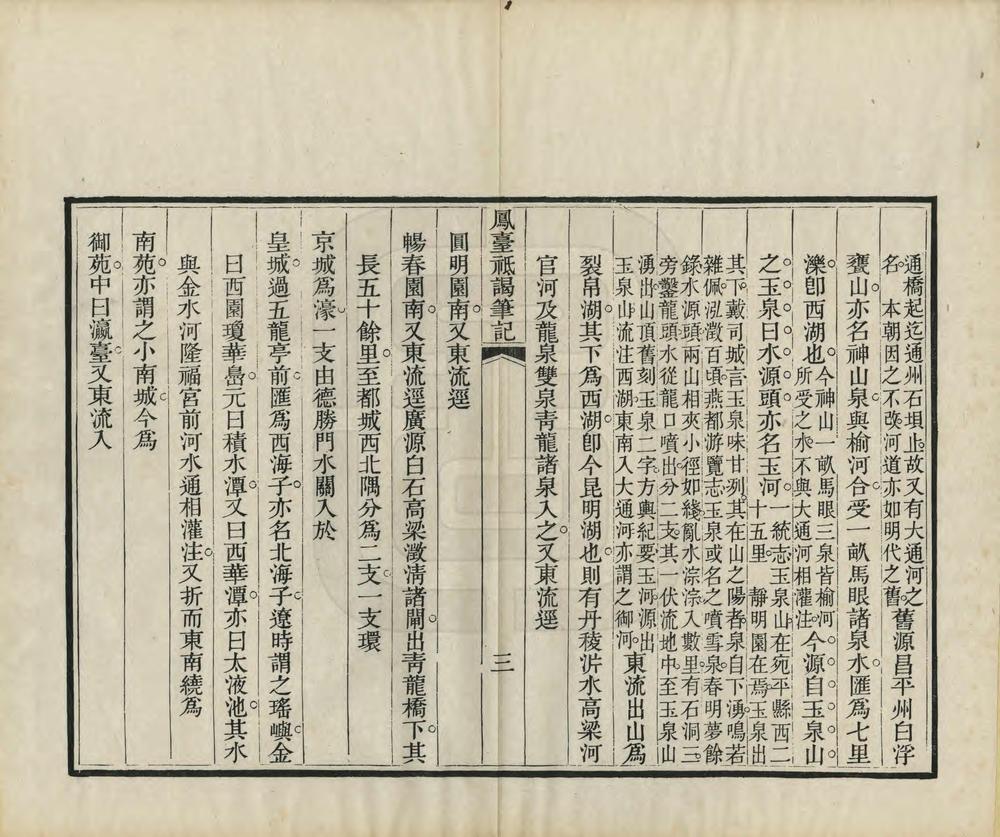 通橋起迄通州石壩止故又有大通河之
名　本朝因之不改河道亦如明代之舊
舊源昌平州白浮
甕山亦名神山泉與榆河合受一畝馬眼諸泉水匯爲七里
濼卽西湖也
今神山一畝馬眼三泉皆榆河
所受之水不與大通河相灌注
今源自玉泉山
之玉泉曰水源頭亦名玉河
一統志玉泉山在宛平縣西二
十五里　靜明園在焉玉泉出
其下戴司城言玉泉味甘冽其在山之陽者泉自下湧鳴若
雜佩泓澂百頃燕都游覽志玉泉或名之噴雪泉春明夢餘
錄水源頭兩山相夾小徑如綫亂水淙淙入數里有石洞三
旁鑿龍頭水從龍口噴出分二支其一伏流地中至玉泉山
湧出山頂舊刻玉泉二字方輿紀要玉河源出
玉泉山流注西湖東南入大通河亦謂之御河
東流出山爲
裂帛湖其下爲西湖卽今昆明湖也則有丹稜沜水高梁河
官河及龍泉雙泉靑龍諸泉入之又東流逕
鳳臺祗謁筆記
三
圓明園南又東流逕
暢春園南又東流逕廣源白石高梁澂淸諸閘出靑龍橋下其
長五十餘里至都城西北隅分爲二支一支環
京城爲濠一支由德勝門水關入於
皇城過五龍亭前匯爲西海子亦名北海子遼時謂之瑤嶼金
曰西園瓊華島元曰積水潭又曰西華潭亦曰太液池其水
與金水河隆福宮前河水通相灌注又折而東南繞爲
南苑亦謂之小南城今爲
御苑中曰瀛臺又東流入